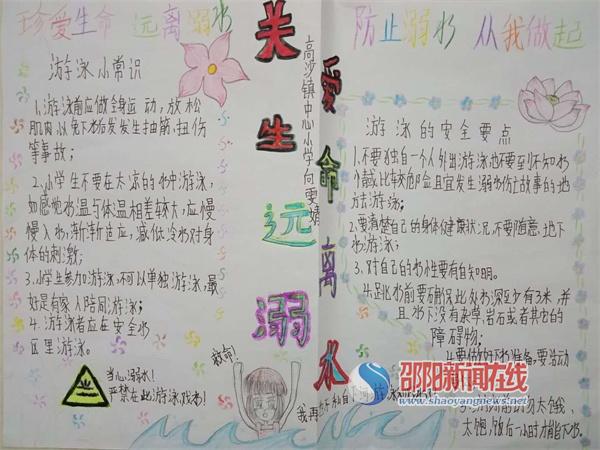 珍爱生命 远离溺水
游泳小常识
1、游泳前应做全身运动,放松
肌肉,以免下水后发生抽筋、扭伤
等事故;
2、小学生不要在太凉的水中游泳,
如感觉水温与体温相差较大,应慢
慢入水,渐渐适应,减低冷水对身
体的刺激;
3、小学生参加游泳,不可以单独游泳,最
好是有家人陪同游泳;
4、游泳者应在安全水
区里游泳。
当心溺水!
严禁在此游泳戏水!
救命!
关爱生命远离溺水
高沙镇中心小学
防止溺水 从我做起
游泳的安全要点
1.不要独自一个人外出游泳,也不要到不知水
情或比较危险且宜发生溺水伤亡故事的地
方法游泳;
2.要清楚自己的身体健康状况,不要随意地下
水游泳;
3.对自己的水性要有自知明。
4.跳水前要确保此处水深至少有3米,并
且水下没有杂草、岩石或者其它的
障碍物;
4.要做好下水准备,要活动
太饱,饭后一小时才能下水。
邵阳新闻在线
www.shaoyangnews.net